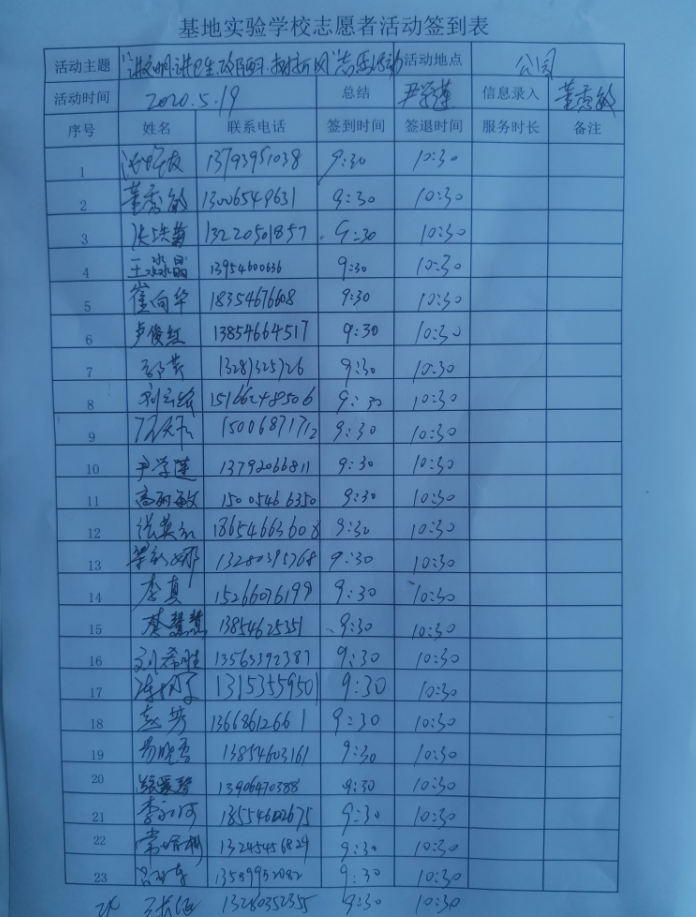 基地实验学校志愿者活动签到表
活动主题 "讲文明 讲卫生 志愿活动 活动地点 公园
活动时间 2020.5.19 总结 尹学莲 信息录入 董秀敏
序号 姓名 联系电话 签到时间 签退时间 服务时长 备注
1 13793951038 9:30 10:30
2 董秀敏 13006549631 9:30 10:30
3 13220501857 9:30 10:30
4 王淼晶 13954600636 9:30 10:30
5 崔向华 18354676608 9:30 10:30
6 卢俊红 13854664517 9:30 10:30
7 13287325726 9:30 10:30
8 15166248506 9:30 10:30
9 15006871712 9:30 10:30
10 尹学莲 13792066811 9:30 10:30
11 15005466350 9:30 10:30
12 18654663608 9:30 10:30
13 13280395768 9:30 10:30
14 李真 15266076199 9:30 10:30
15 慧慧 13854625351 9:30 10:30
16 刘希胜 13563392387 9:30 10:30
17 13153559501 9:30 10:30
18 赵芳 13668612661 9:30 10:30
19 13854603161 9:30 10:30
20 13906470388 9:30 10:30
21 李 18554602675 9:30 10:30
22 常 13245456829 9:30 10:30
23 13589952082 9:30 10:30
24 13280352355 9:30 10:30